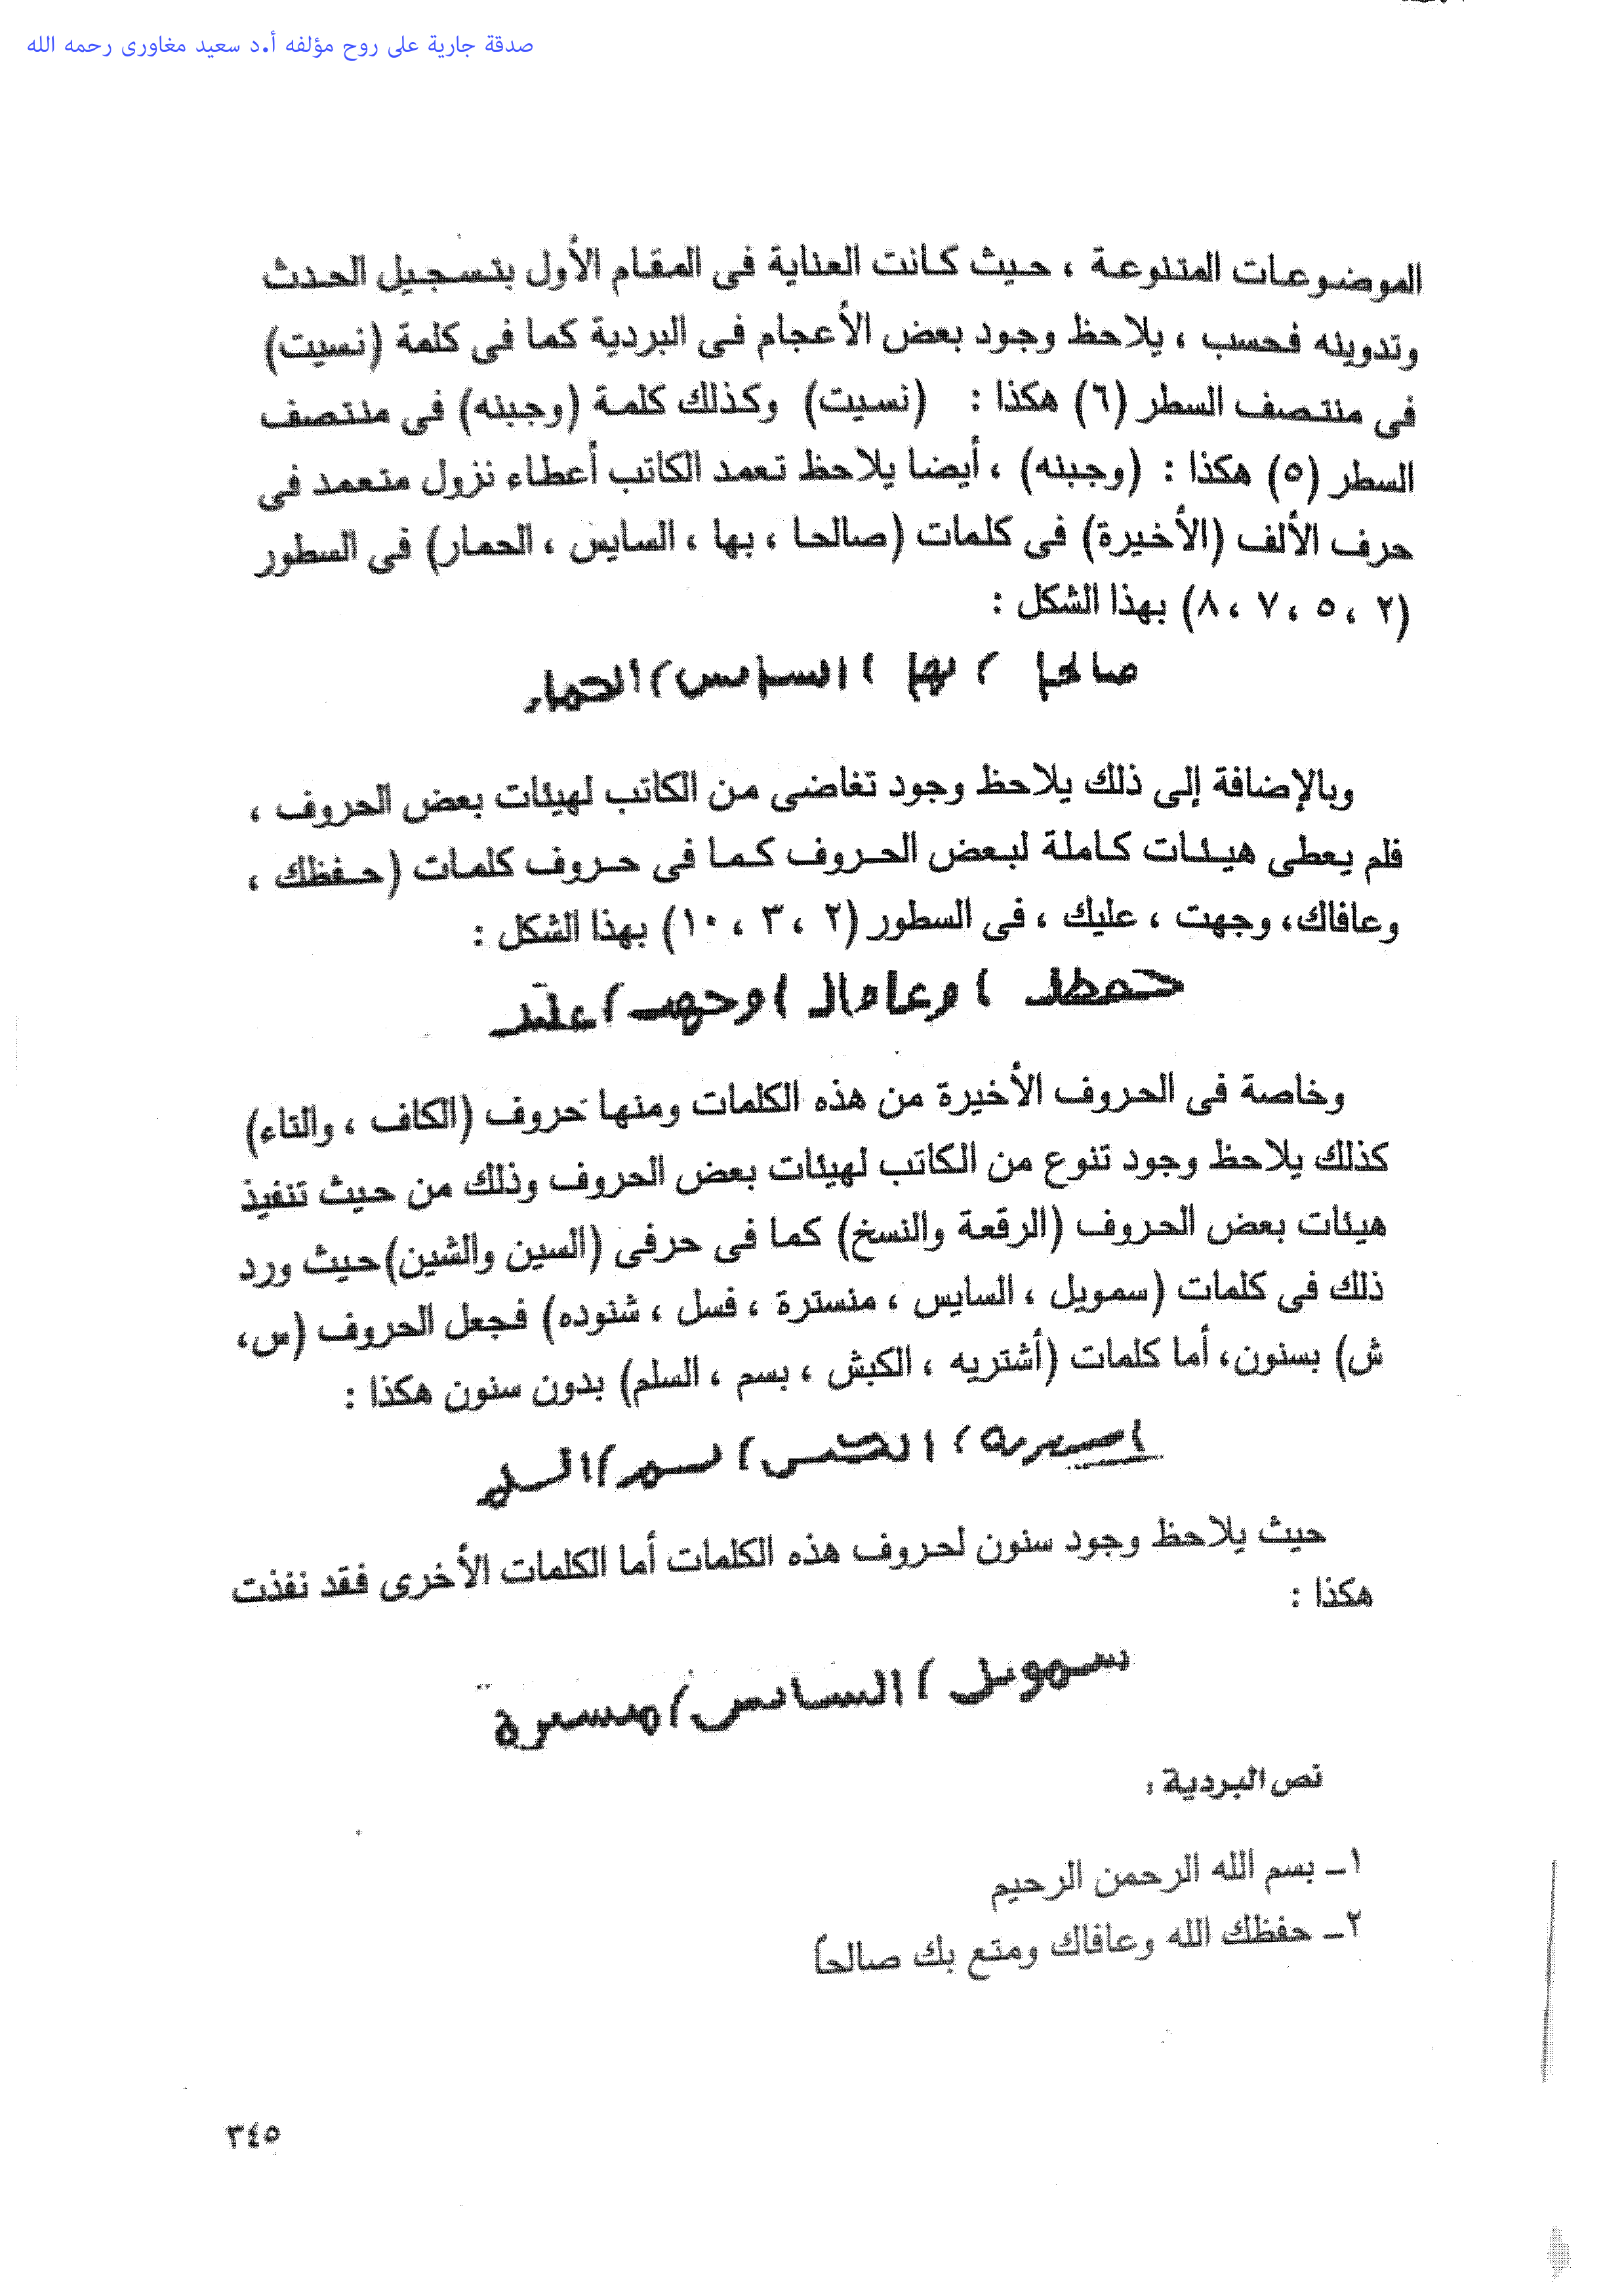 صدقة جارية على روح مؤلفه أ.د سعيد مغاورى رحمه الله
الموضوعات المتنوعة ، حيث كانت العناية فى المقام الأول بتسجيل الحدث
وتدوينه فحسب ، يلاحظ وجود بعض الأعجام فى البردية كما فى كلمة (نسيت)
فى منتصف السطر (٦) هكذا : (نسيت) وكذلك كلمة (وجبنه) فى منتصف
السطر (٥) هكذا : (وجبنه) ، أيضا يلاحظ تعمد الكاتب أعطاء نزول متعمد فى
حرف الألف (الأخيرة) فى كلمات (صالحا ، بها ، السايس ، الحمار) فى السطور
(٢ ، ٥ ، ٧ ، ٨) بهذا الشكل :
صالحا ، بها ، السايس ، الحمار
وبالإضافة إلى ذلك يلاحظ وجود تغاضى من الكاتب لهيئات بعض الحروف ،
فلم يعطى هيئات كاملة لبعض الحروف كما فى حروف كلمات (حفظك ،
وعافاك، وجهت ، عليك ، فى السطور (٢ ، ٣ ، ١٠) بهذا الشكل :
وخاصة فى الحروف الأخيرة من هذه الكلمات ومنها حروف (الكاف ، والتاء)
كذلك يلاحظ وجود تنوع من الكاتب لهيئات بعض الحروف وذلك من حيث تنفيذ
هيئات بعض الحروف (الرقعة والنسخ) كما فى حرفى (السين والشين)حيث ورد
ذلك فى كلمات (سمويل ، السايس ، منسترة ، فسل ، شنوده) فجعل الحروف (س،
ش) بسنون، أما كلمات (أشتريه ، الكبش ، بسم ، السلم) بدون سنون هكذا :
حيث يلاحظ وجود سنون لحروف هذه الكلمات أما الكلمات الأخرى فقد نفذت
هكذا :
سمويل ، السايس ، منسترة
نص البردية :
١ـ بسم الله الرحمن الرحيم
٢ـ حفظك الله وعافاك ومتع بك صالحاً
٣٤٥